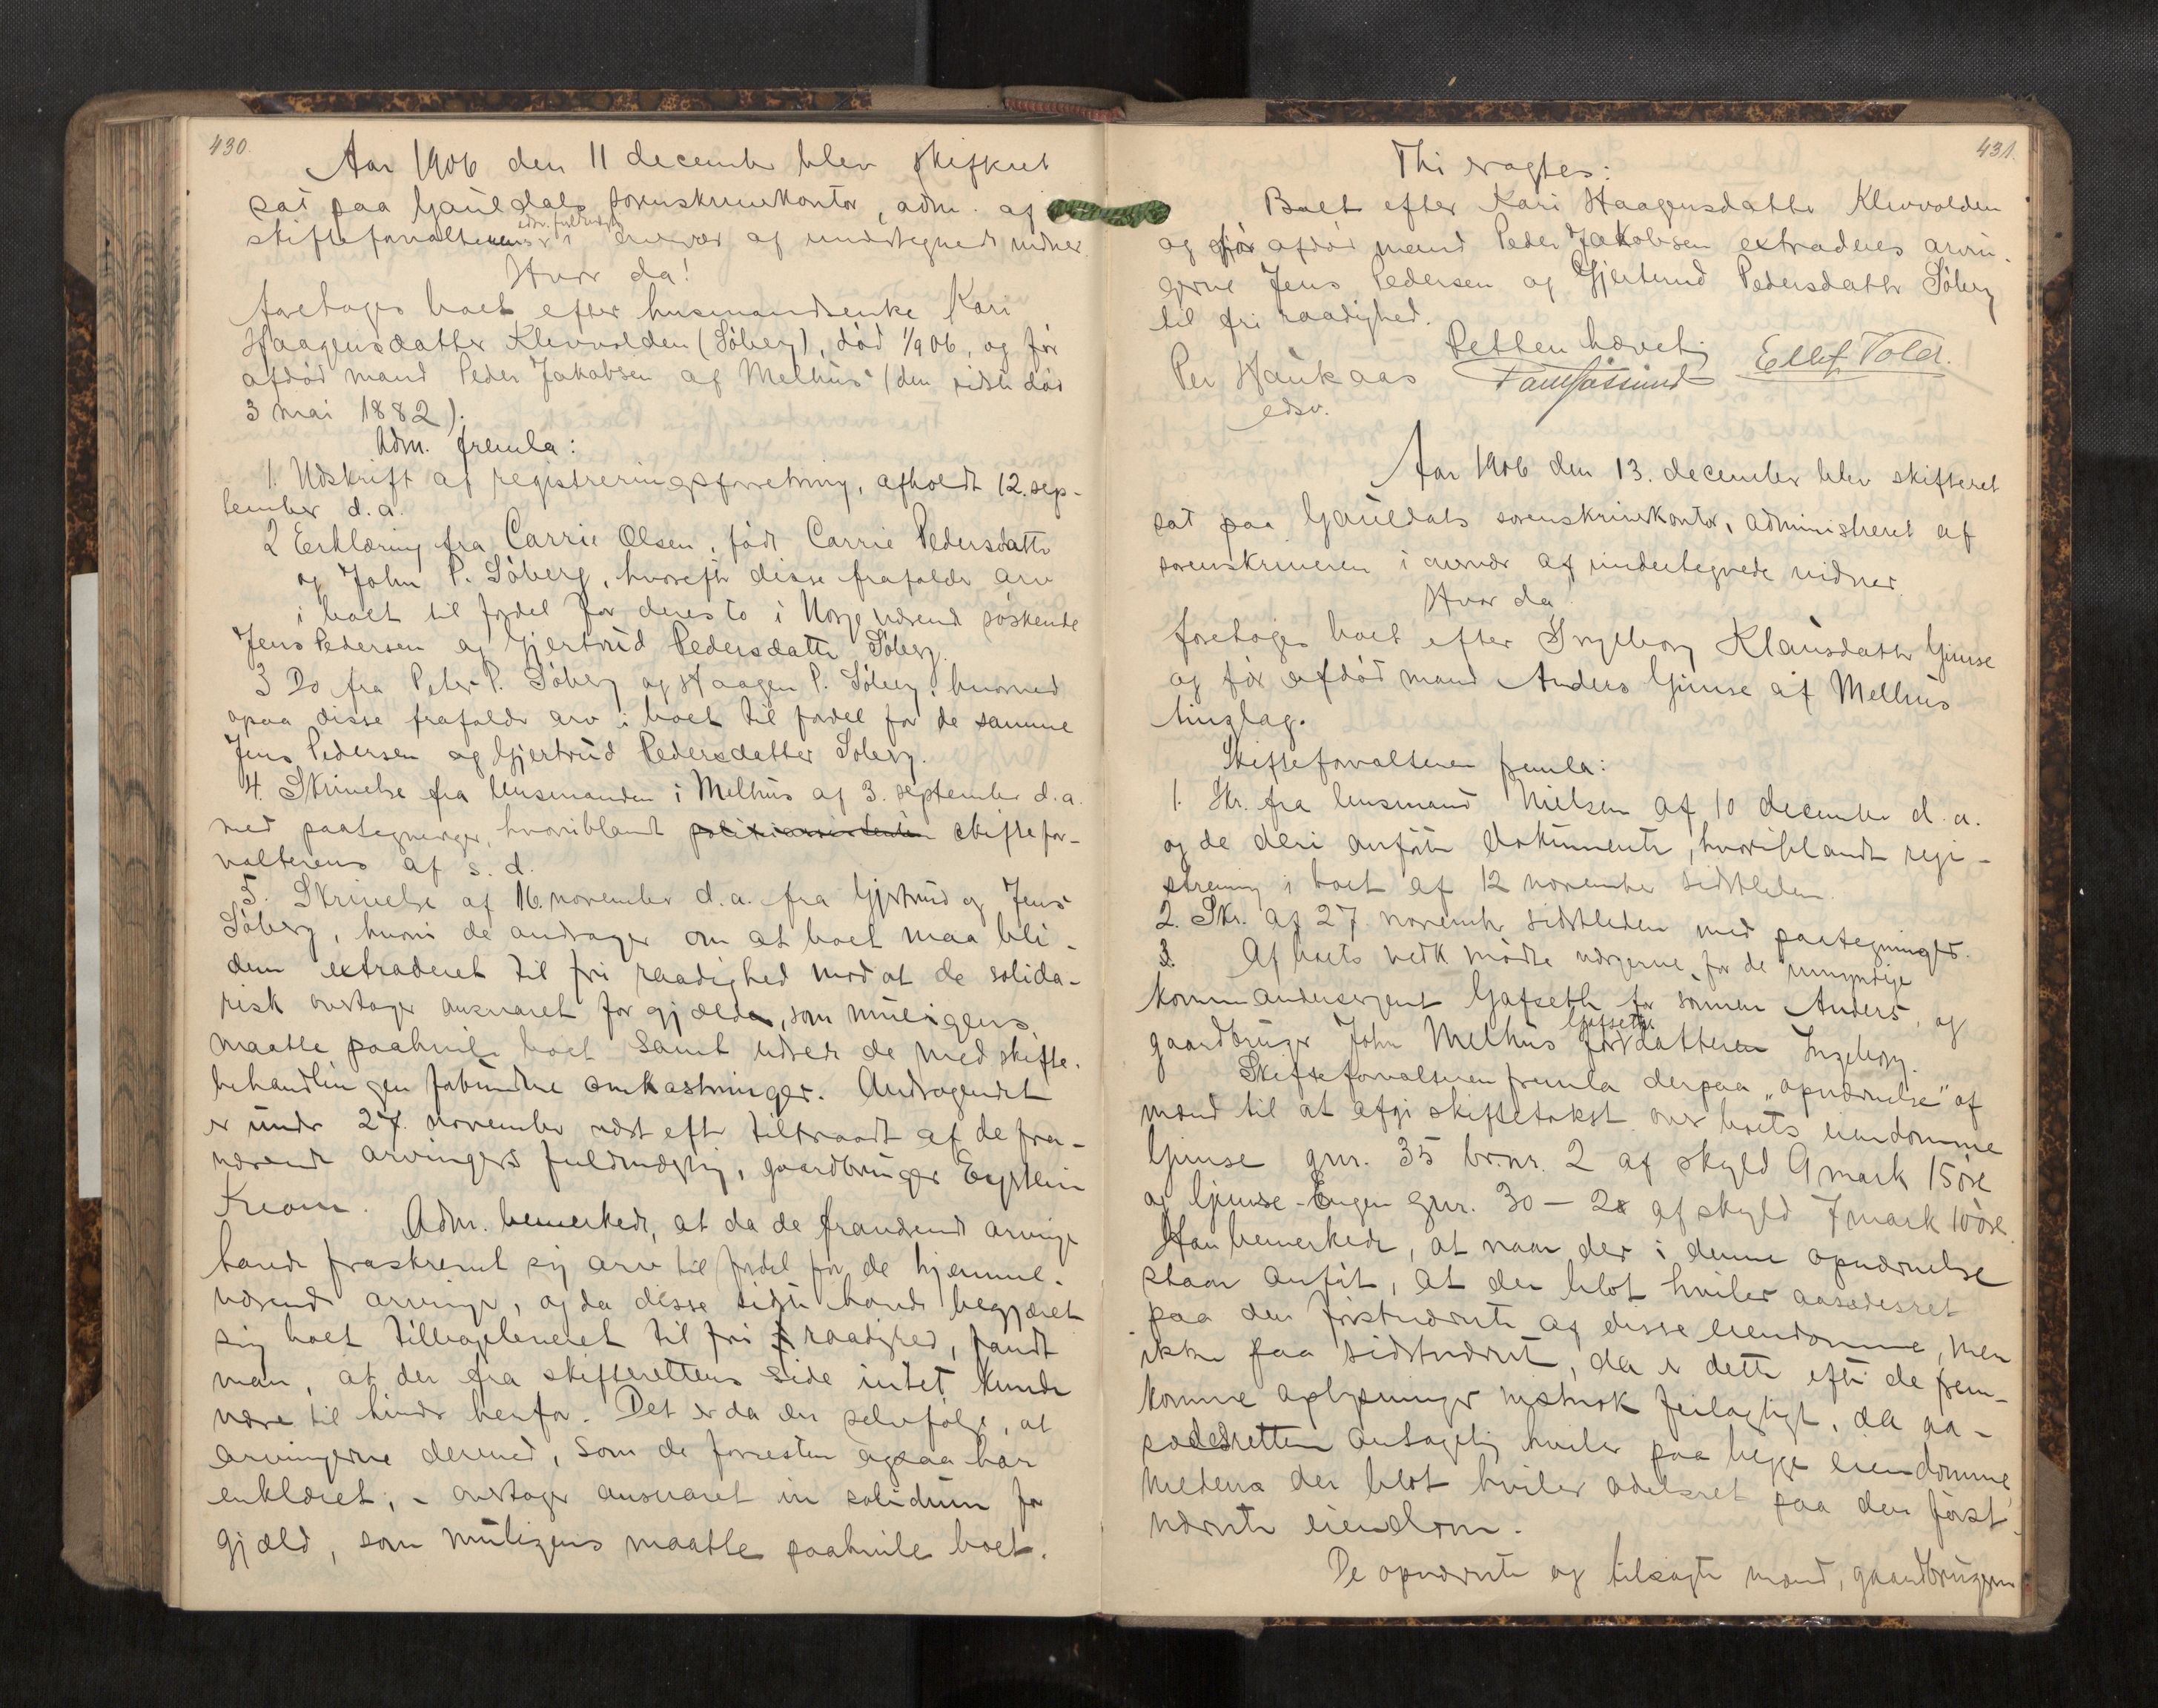 430.
Aar 1906 den 11 december blev skifteret
sat paa Gauldals sorenskriverkontor, adm. af
edsv. fuldmægtig
skifteforvalterens i overvær af undertegnede vidner.
Hvor da!
foretoges boet efter husmandsenke Kari
Haagensdatter Klevvolden (Söberg), död 1/9 06, og för
afdöd mand Peder Jakobsen af Melhus (den sidste död
3 mai 1882).
Adm. fremla:
1. Udskrift af registreringsforretning, afholdt 12. sep-
tember d.a.
2 Erklæring fra Carrie Olsen, födt Carrie Pedersdatter
og John P. Söberg, hvorefter disse frafalder arv
i boet til fordel for deres to i Norge værende söskende
Jens Pedersen og Gjertrud Pedersdatter Söberg.
3 Do fra Peter P. Söberg og Haagen P. Söberg, hvorved
ogsaa disse frafalder arv i boet til fordel for de samme
Jens Pedersen og Gjertrud Pedersdatter Söberg.
4. Skrivelse fra lensmanden i Melhus af 3. september d.a.
med paategninger, hvoriblandt skiftefor-
valterens af s. d.
5. Skrivelse af 16. november d.a. fra Gjertrud og Jens
Söberg, hvori de andrager om at boet maa bli
dem extraderet til fri raadighed mod at de solida-
risk overtager ansvaret for gjælden, som muligens
maatte paahvile boet samt udreder de med skifte-
behandlingen forbundne omkostninger. Andragendet
er under 27. november næst efter tiltraadt af de fra-
værende arvingers fuldmægtig, gaardbruger Eystein
Kreom.
Adm. bemerkede, at da de fraværende arvinger
havde fraskrevet sig arv til fordel for de hjemme-
værende arvinger, og da disse sidste havde begjæret
sig boet tilbageleveret til fri raadighed, fandt
man, at der fra skifterettens side intet kunde
være til hinder herfor. Det er da en selvfölge, at
arvingerne derved, som de forresten ogsaa har
erklæret, - overtager ansvaret in solidum for
gjæld, som muligens maatte paahvile boet.
431.
Thi vragtes:
Boet efter Kari Haagensdatter Klevvolden
og för afdöd mand Peder Jakobsen extraderes arvin-
gerne Jens Pedersen og Gjertrud Pedersdatter Söberg
til fri raadighed.
Retten hævet
Per Haukaas Ellef Vold.
edsv.
Aar 1906 den 13. december blev skifteret
sat paa Gauldals sorenskriverkontor, administreret af
sorenskriveren i overvær af undertegnede vidner.
Hvor da
foretoges boet efter Ingeborg Klausdatter Gimse
og för afdöd mand Anders Gimse af Melhus
tinglag.
Skifteforvalteren fremla:
1. Skr. fra lensmand Nielsen af 10 december d.a.
og de deri anförte dokumenter, hvoriblandt regi-
strering i boet af 12 november sidstleden.
2. Skr. af 27. november sidstleden med paategninger.
3. Af boets vedk mödte værgerne for de umyndige
kommandersergent Gafseth for sönnen Anders, og
Gafseth
gaardbruger John Melhus for datteren Ingeborg.
Skifteforvalteren fremla derpaa "opnævnelse" af
mænd til at afgi skiftetakst over boets eiendomme
Gimse gnr. 35 br.nr. 2 af skyld 9 mark 15 öre
og Gimse-Engen gnr. 30 - 28 af skyld 7 mark 10 öre.
Han bemerkede, at naar der i denne opnævnelse
staar anfört, at der blot hviler aasædesret
paa den förstnævnte af disse eiendomme, men
ikke paa sidstnævnte, da er dette efter de frem-
komne oplysninger feilagtigt, da aa-
sædesretten antagelig hviler paa begge eiendomme,
medens der blot hviler odelsret paa den först-
nævnte eiendom.
De opnævnte og tilsagte mænd, gaardbrugerne